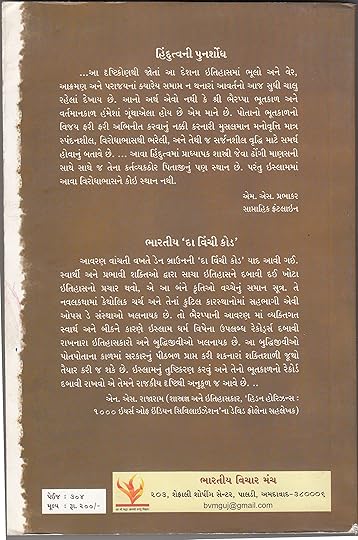 હિંદુત્વની પુનર્શોધ
...આ દૃષ્ટિકોણથી જોતાં આ દેશના ઇતિહાસમાં ભૂલો અને વેર,
આક્રમણ અને પરાજયનાં ક્યારેય સમાપ્ત ન થનારા આવર્તનો આજ સુધી ચાલુ
રહેલાં દેખાય છે. આનો અર્થ એવો નથી કે શ્રી ભૈરપ્પા ભૂતકાળ અને
વર્તમાનકાળ હંમેશાં ગૂંથાએલા હોય છે એમ માને છે. પોતાનો ભૂતકાળનો
વિજય ફરી ફરી અભિનીત કરવાનું નક્કી કરનારી મુસલમાન મનોવૃત્તિ માત્ર
સ્પંદનશીલ, વિરોધાભાસથી ભરેલી, અને તેથી જ સર્જનશીલ વૃદ્ધિ માટે સમર્થ
હોવાનું બતાવે છે. ... આવા હિંદુત્વમાં પ્રાધ્યાપક શાસ્ત્રી જેવા ઢોંગી માણસની
સાથે સાથે જ તેના કર્તવ્યકઠોર પિતાજીનું પણ સ્થાન છે. પરંતુ ઇસ્લામમાં
આવા વિરોધાભાસને કોઇ સ્થાન નથી.
એમ. એસ. પ્રભાકર
સાપ્તાહિક ફ્રંટલાઇન
ભારતીય 'દા વિંચી કોડ'
આવરણ વાંચતી વખતે ડેન બ્રાઉનની 'દા વિંચી કોડ' યાદ આવી ગઈ.
સ્વાર્થી અને પ્રભાવી શક્તિઓ દ્વારા સાચા ઇતિહાસને દબાવી દઈ ખોટા
ઇતિહાસનો પ્રચાર થવો, એ આ બંને કૃતિઓ વચ્ચેનું સમાન સૂત્ર. તે
નવલકથામાં કેથોલિક ચર્ચ અને તેનાં કુટિલ કારસ્થાનોમાં સહભાગી એવી
ઓપસ ડે સંસ્થાઓ ખલનાયક છે. તો ભૈરપ્પાની આવરણ માં વ્યક્તિગત
સ્વાર્થ અને બીકને કારણે ઇસ્લામ ધર્મ વિષેના ઉપલબ્ધ રેકોર્ડ્સ દબાવી
રાખનારા ઇતિહાસકારો અને બુદ્ધિજીવીઓ ખલનાયક છે. આ બુદ્ધિજીવીઓ
પોતપોતાના કાળમાં સરકારનું પીઠબળ પ્રાપ્ત કરી શકનારાં શક્તિશાળી જૂથો
તૈયાર કરી જ શકે છે. ઇસ્લામનું તુષ્ટિકરણ કરવું અને તેનો ભૂતકાળનો રેકોર્ડ
દબાવી રાખવો એ તેમને રાજકીય દૃષ્ટિથી અનુકૂળ જ આવે છે. ..
એન. એસ. રાજારામ (શાસ્ત્રજ્ઞ અને ઇતિહાસકાર, 'હિડન હોરિઝન્સ :
૧૦૦૦ ઇયર્સ ઓફ ઇંડિયન સિવિલાઇઝેશન'ના ડેવિડ ફ્રોલેના સહલેખક)
પેઇજ : ૩૦૪
મૂલ્ય : રૂા. ૨૦૦/-
ભારતીય વિચાર મંચ
૨૦૩, શેફાલી શોપીંગ સેન્ટર, પાલડી, અમદાવાદ-૩૮૦૦૦૬
bvmguj@gmail.com